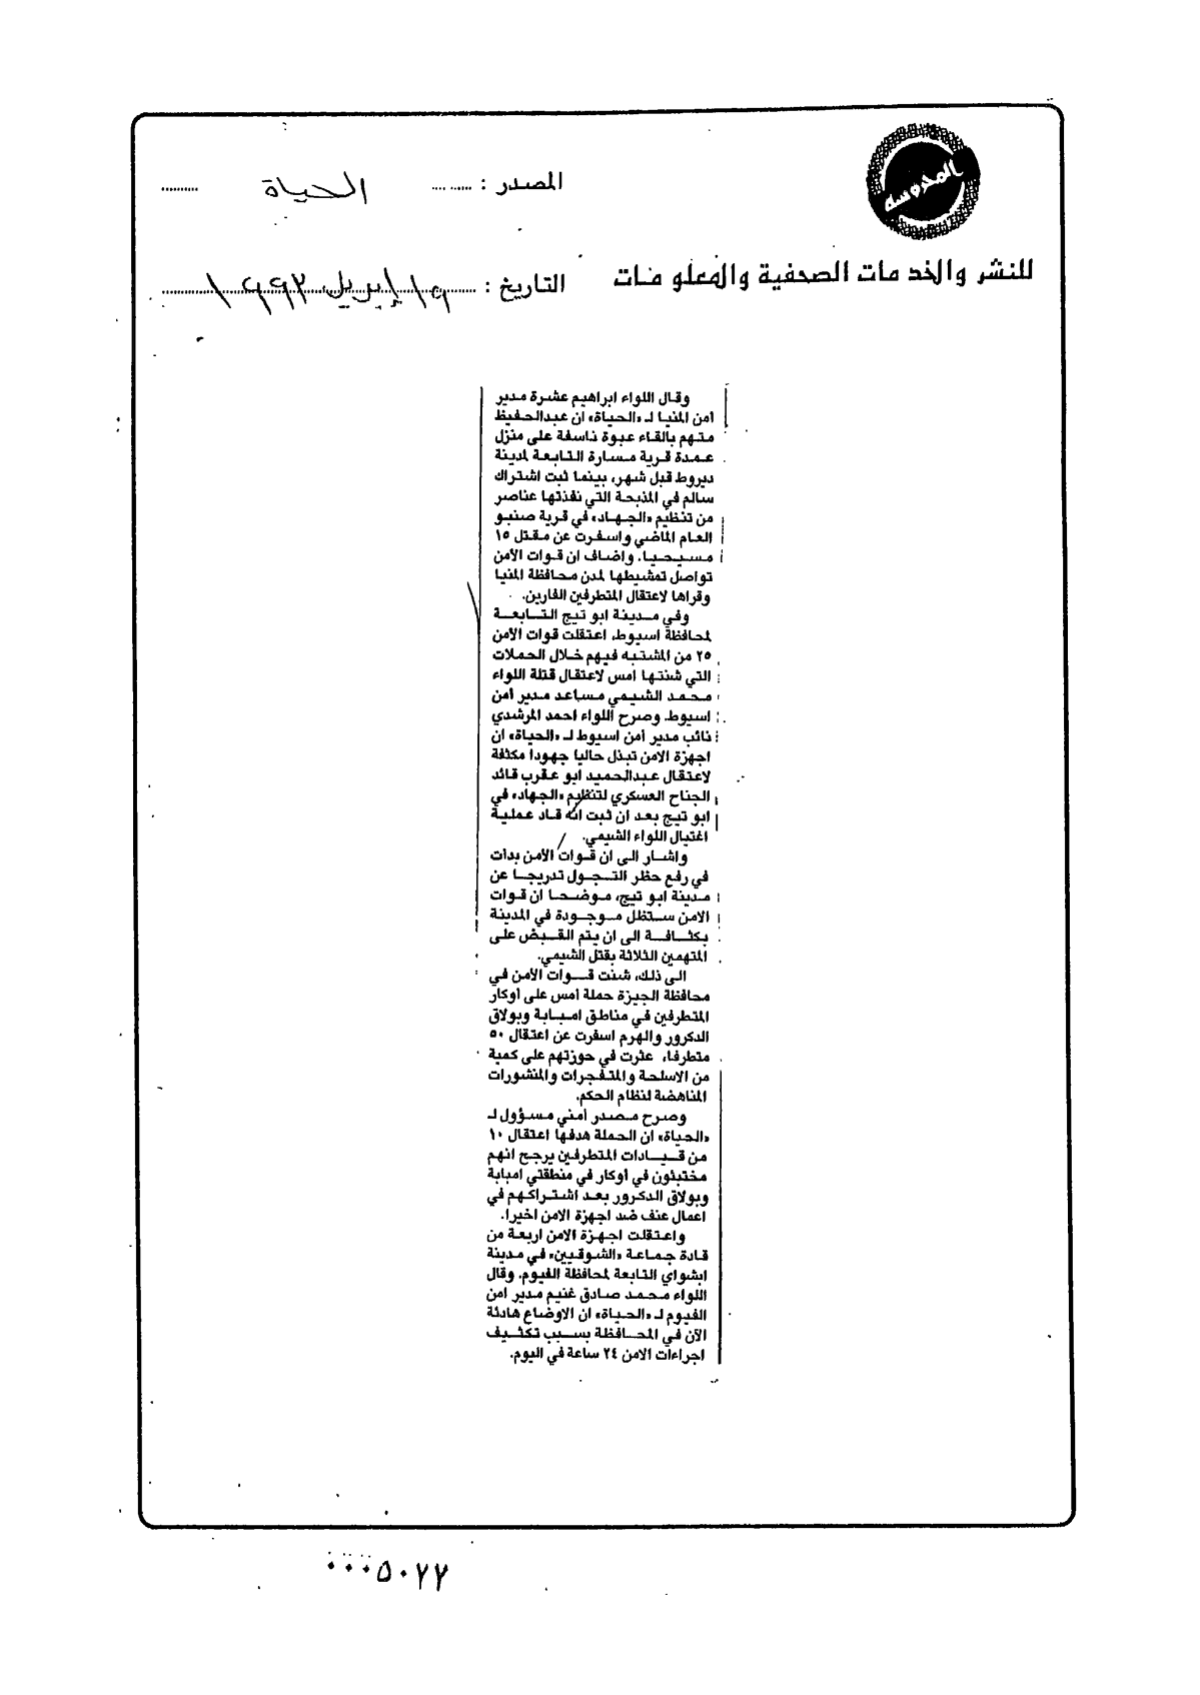 المحروسة
المصدر : الحياة
للنشر والخدمات الصحفية والمعلومات
التاريخ : ١٩ إبريل ١٩٩٣
وقال اللواء ابراهيم عشرة مدير
امن المنيا لـ «الحياة» ان عبدالحفيظ
متهم بالقاء عبوة ناسفة على منزل
عمدة قرية مسارة التابعة لمدينة
ديروط قبل شهر، بينما ثبت اشتراك
سالم في المذبحة التي نفذتها عناصر
من تنظيم «الجهاد» في قرية صنبو
العام الماضي واسفرت عن مقتل ١٥
مسيحيا. واضاف ان قوات الأمن
تواصل تمشيطها لمدن محافظة المنيا
وقراها لاعتقال المتطرفين الفارين.
وفي مدينة ابو تيج التابعة
لمحافظة اسيوط، اعتقلت قوات الأمن
٢٥ من المشتبه فيهم خلال الحملات
التي شنتها امس لاعتقال قتلة اللواء
محمد الشيمي مساعد مدير امن
اسيوط. وصرح اللواء احمد المرشدي
نائب مدير امن اسيوط لـ «الحياة» ان
اجهزة الامن تبذل حاليا جهودا مكثفة
لاعتقال عبدالحميد ابو عقرب قائد
الجناح العسكري لتنظيم «الجهاد» في
ابو تيج بعد ان ثبت انه قاد عملية
اغتيال اللواء الشيمي.
واشار الى ان قوات الأمن بدأت
في رفع حظر التجول تدريجا عن
مدينة ابو تيج، موضحا ان قوات
الامن ستظل موجودة في المدينة
بكثافة الى ان يتم القبض على
المتهمين الثلاثة بقتل الشيمي.
الى ذلك، شنت قوات الأمن في
محافظة الجيزة حملة امس على أوكار
المتطرفين في مناطق امبابة وبولاق
الدكرور والهرم اسفرت عن اعتقال ٥٠
متطرفا، عثرت في حوزتهم على كمية
من الاسلحة والمتفجرات والمنشورات
المناهضة لنظام الحكم.
وصرح مصدر امني مسؤول لـ
«الحياة» ان الحملة هدفها اعتقال ١٠
من قيادات المتطرفين يرجح انهم
مختبئون في أوكار في منطقتي امبابة
وبولاق الدكرور بعد اشتراكهم في
اعمال عنف ضد اجهزة الامن اخيرا.
واعتقلت اجهزة الامن اربعة من
قادة جماعة «الشوقيين» في مدينة
ابشواي التابعة لمحافظة الفيوم. وقال
اللواء محمد صادق غنيم مدير امن
الفيوم لـ «الحياة» ان الاوضاع هادئة
الآن في المحافظة بسبب تكثيف
اجراءات الامن ٢٤ ساعة في اليوم.
٠٠٠٥٠٧٧